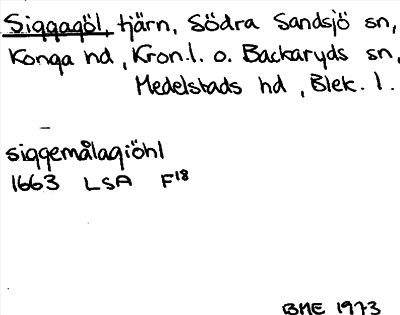 Siggagöl, tjärn, Södra Sandsjö sn,
Konga hd, Kron.l. o. Backaryds sn,
Medelstads hd, Blek. l.
siggemålagiöhl
1663 LSA F18
BME 1973